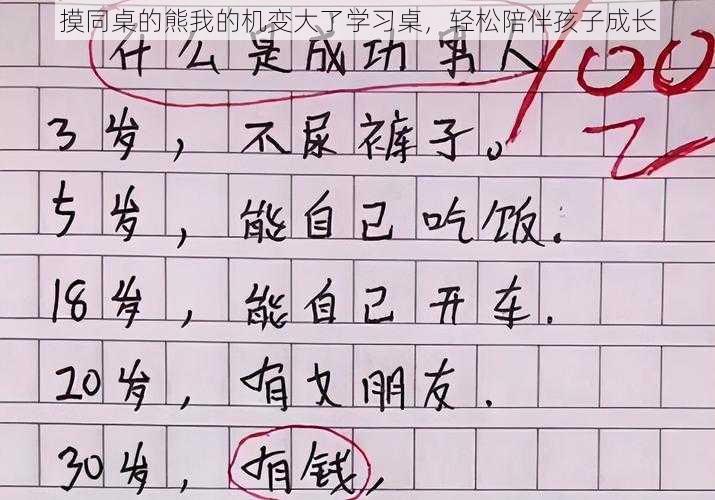 摸同桌的熊我的机变大了学习桌，轻松陪伴孩子成长
什么是成功男人
100
3岁，不尿裤子。
5岁，能自己吃饭.
18岁，能自己开车.
20岁，有女朋友.
30岁，有钱，